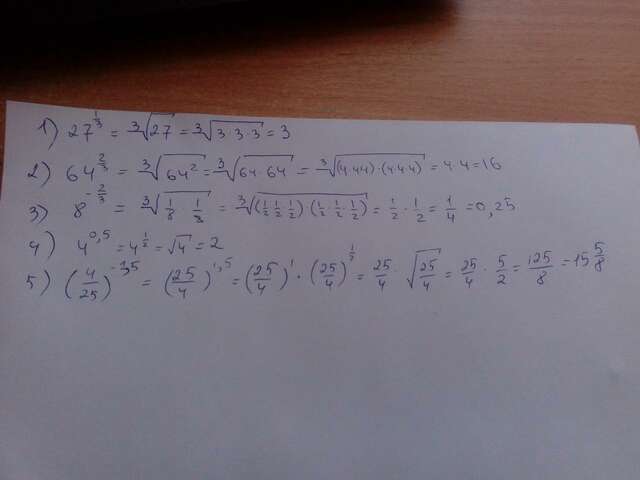 1) 27^(1/3) = ∛27 = ∛(3·3·3) = 3
2) 64^(2/3) = ∛(64²) = ∛(64·64) = ∛((4·4·4)·(4·4·4)) = 4·4 = 16
3) 8^(-2/3) = ∛(1/8 · 1/8) = ∛((1/2·1/2·1/2)·(1/2·1/2·1/2)) = 1/2 · 1/2 = 1/4 = 0,25
4) 4^(0,5) = 4^(1/2) = √4 = 2
5) (4/25)^(-1,5) = (25/4)^(1,5) = (25/4)^1 · (25/4)^(1/2) = 25/4 · √(25/4) = 25/4 · 5/2 = 125/8 = 15 5/8